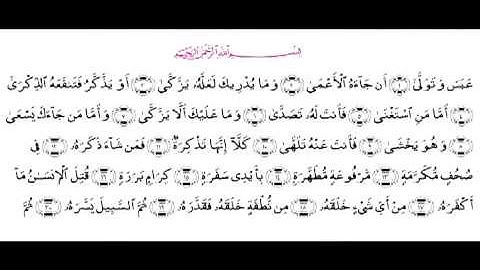 بِسْمِ اللَّهِ الرَّحْمَٰنِ الرَّحِيمِ
عَبَسَ وَتَوَلَّىٰٓ ١ أَن جَآءَهُ الْأَعْمَىٰ ٢ وَمَا يُدْرِيكَ لَعَلَّهُۥ يَزَّكَّىٰٓ ٣ أَوْ يَذَّكَّرُ فَتَنفَعَهُ الذِّكْرَىٰٓ
٤ أَمَّا مَنِ اسْتَغْنَىٰ ٥ فَأَنتَ لَهُۥ تَصَدَّىٰ ٦ وَمَا عَلَيْكَ أَلَّا يَزَّكَّىٰ ٧ وَأَمَّا مَن جَآءَكَ يَسْعَىٰ
٨ وَهُوَ يَخْشَىٰ ٩ فَأَنتَ عَنْهُ تَلَهَّىٰ ١٠ كَلَّآ إِنَّهَا تَذْكِرَةٌ ١١ فَمَن شَآءَ ذَكَرَهُۥ ١٢ فِى
صُحُفٍ مُّكَرَّمَةٍ ١٣ مَّرْفُوعَةٍ مُّطَهَّرَةٍۭ ١٤ بِأَيْدِى سَفَرَةٍ ١٥ كِرَامٍۭ بَرَرَةٍ ١٦ قُتِلَ الْإِنسَٰنُ مَآ
أَكْفَرَهُۥ ١٧ مِنْ أَىِّ شَىْءٍ خَلَقَهُۥ ١٨ مِن نُّطْفَةٍ خَلَقَهُۥ فَقَدَّرَهُۥ ١٩ ثُمَّ السَّبِيلَ يَسَّرَهُۥ ٢٠ ثُمَّ